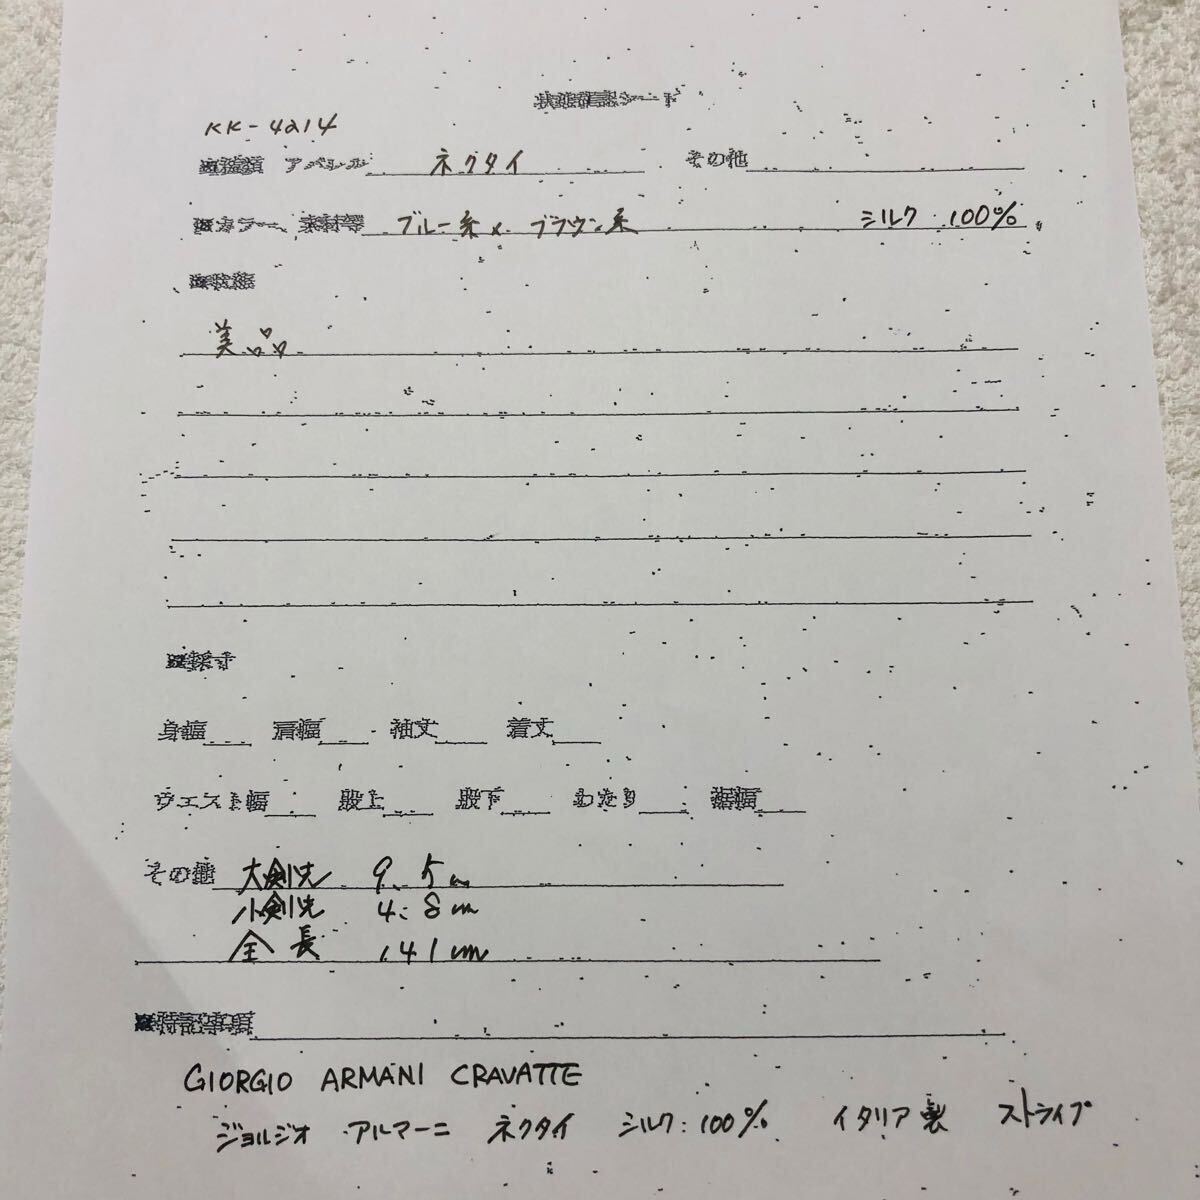 状態確認シート
KK-4214
※種類 アパレル ネクタイ その他
※カラー、素材等 ブルー系×ブラウン系 シルク:100%
※状態
美品
※採寸
身幅 肩幅 袖丈 着丈
ウエスト幅 股上 股下 わたり 裾幅
その他 大剣先 9.5cm
小剣先 4.8cm
全長 141cm
※特記事項
GIORGIO ARMANI CRAVATTE
ジョルジオ アルマーニ ネクタイ シルク:100% イタリア製 ストライプ